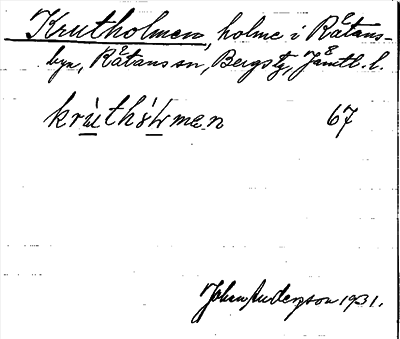 Krutholmen, holme i Råtans-
byn, Råtans sn, Bergs tg, Jämtl. l.
67
Johan Anderzson 1931.